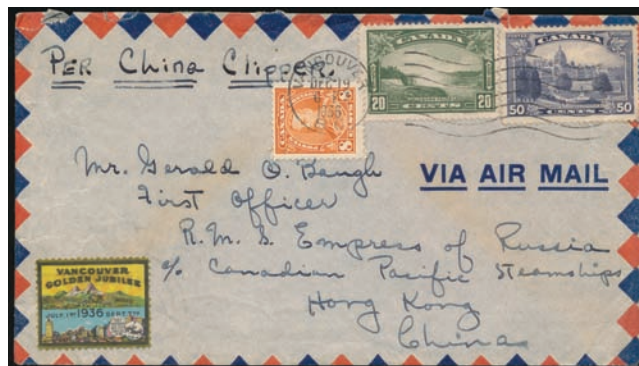 PER China Clipper.
VANCOUVER
CANADA
20 CENTS 20
CANADA
50 CENTS 50
CANADA
8 8
Mr. Gerald O. Baugh
VIA AIR MAIL
First Officer
R.M.S. Empress of Russia
c/o Canadian Pacific Steamships
Hong Kong
China
VANCOUVER
GOLDEN JUBILEE
JULY 1ST 1936 SEPT 7TH